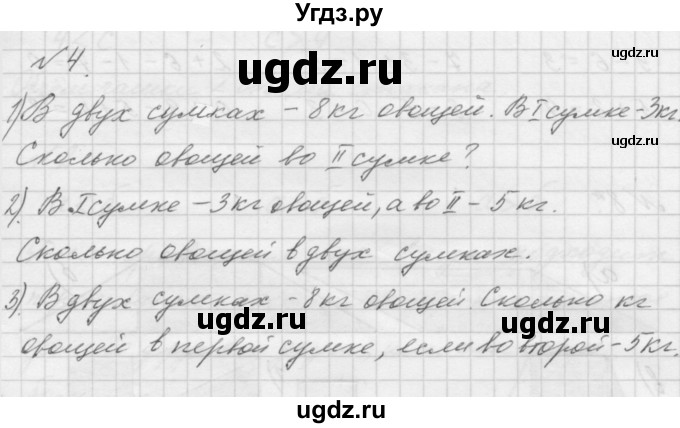 Угдз.ру
ugdz.ru
ugdz.ru
№ 4.
1) В двух сумках – 8 кг овощей. В I сумке – 3 кг.
Сколько овощей во II сумке?
ugdz.ru
2). В I сумке – 3 кг овощей, а во II – 5 кг.
Сколько овощей в двух сумках.
3). В двух сумках – 8 кг овощей Сколько кг
ugdz.ru
ugdz.ru
овощей в первой сумке, если во второй – 5 кг.
ugdz.ru